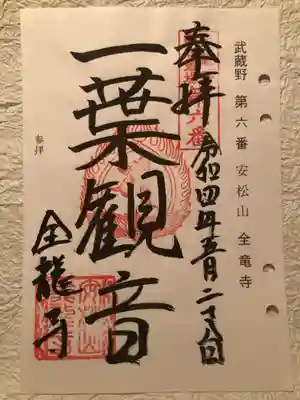 武蔵野 第六番 安松山 全竜寺
奉拝 令和四年五月二十八日
一葉観音
全龍寺
参拝